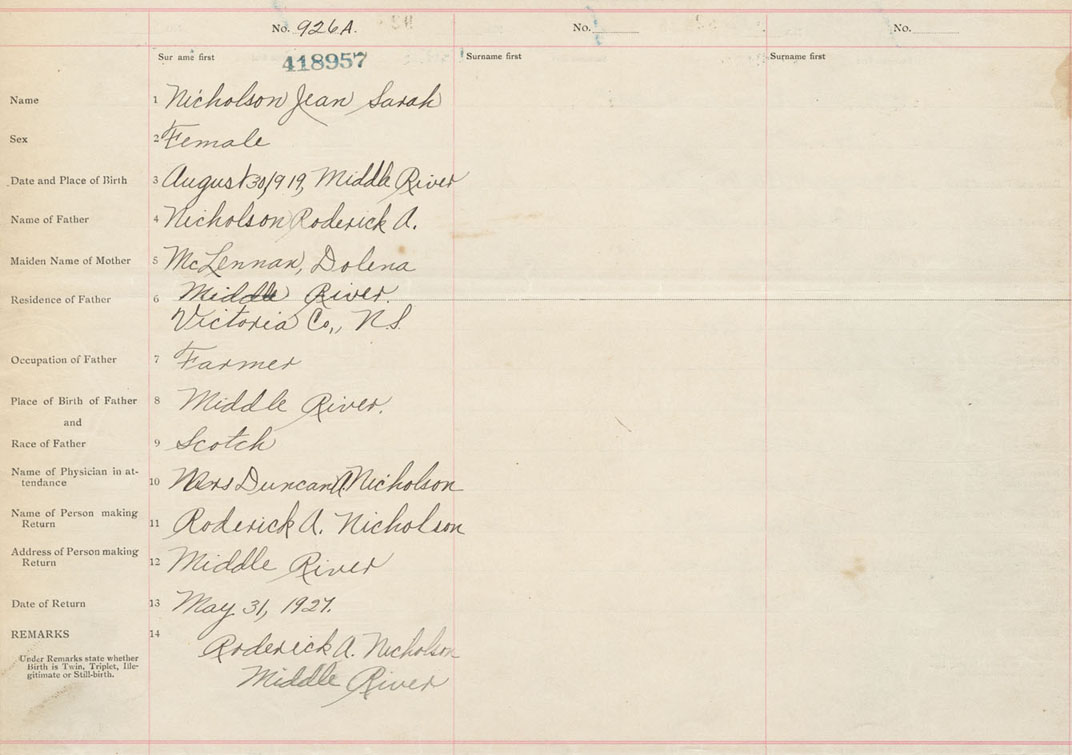 No. 926A.
No.
No.
Sur ame first
418957
Surname first
Surname first
Name 1 Nicholson Jean Sarah
Sex 2 Female
Date and Place of Birth 3 August 30/919, Middle River
Name of Father 4 Nicholson Roderick A.
Maiden Name of Mother 5 McLennan, Dolena
Residence of Father 6 Middle River.
Victoria Co., N.S.
Occupation of Father 7 Farmer
Place of Birth of Father 8 Middle River.
and
Race of Father 9 Scotch
Name of Physician in at-
tendance 10 Mrs Duncan A Nicholson
Name of Person making
Return 11 Roderick A. Nicholson
Address of Person making
Return 12 Middle River
Date of Return 13 May 31, 1927.
REMARKS 14
Roderick A. Nicholson
Under Remarks state whether
Birth is Twin, Triplet, Ille-
gitimate or Still-birth.
Middle River